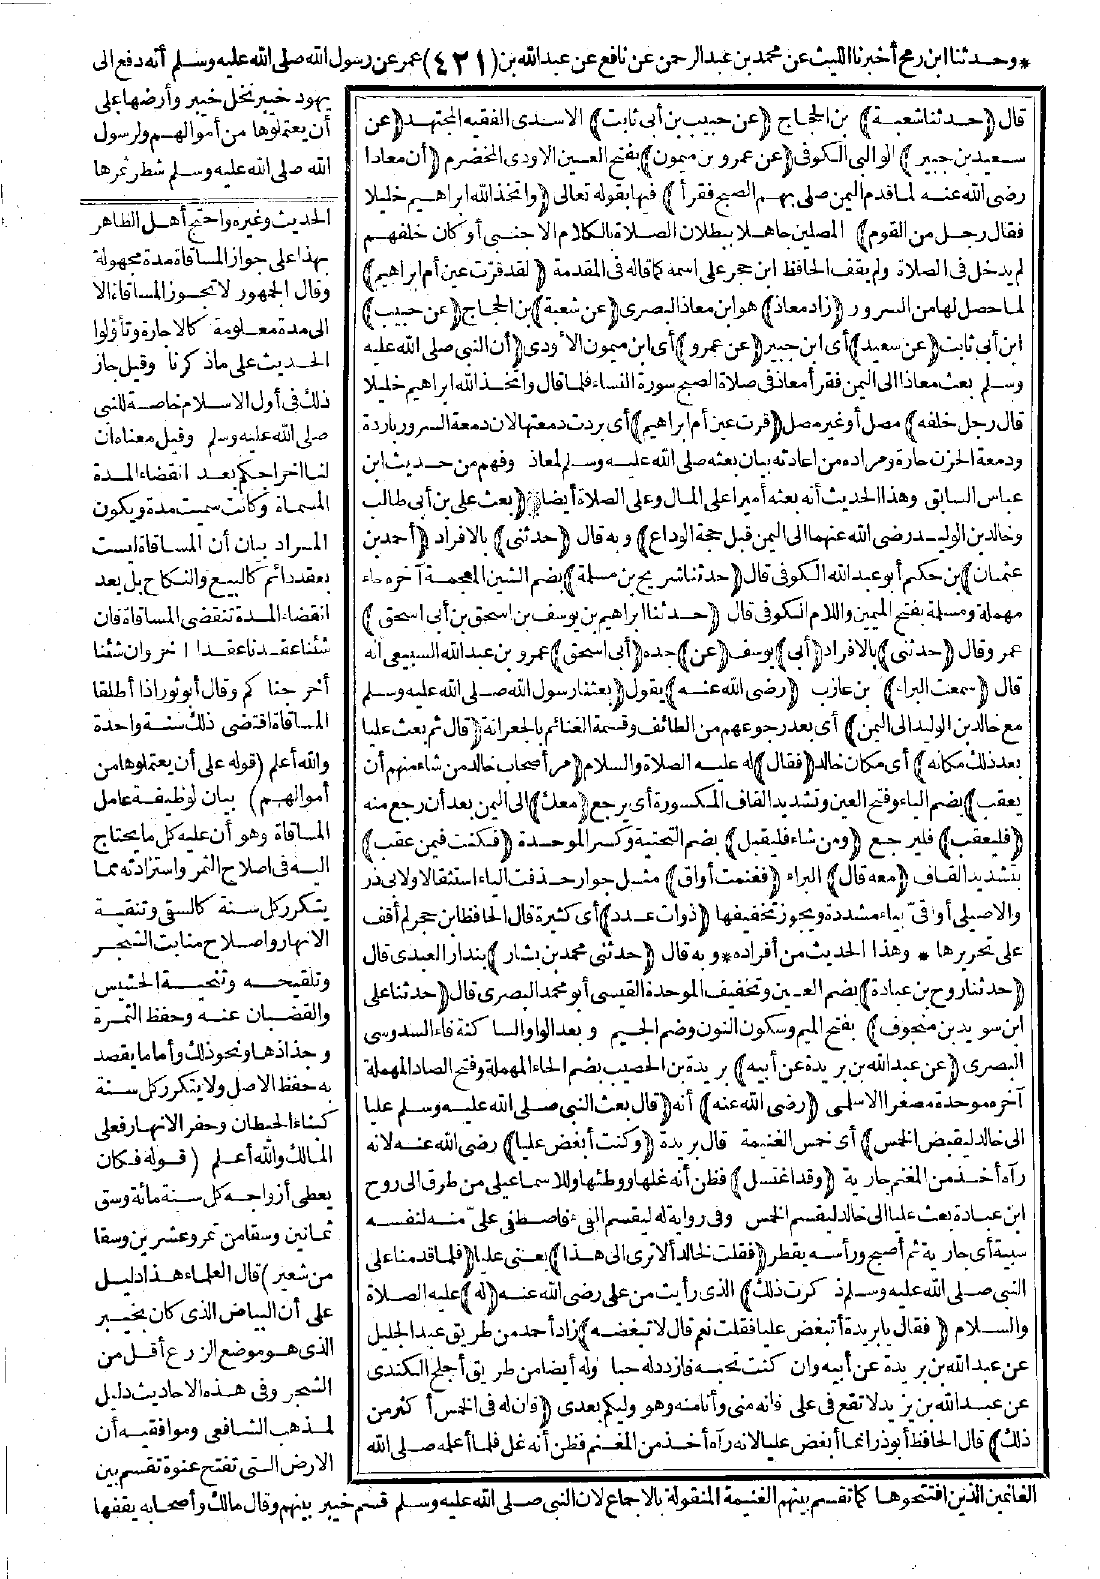 * وحدثنا ابن رمح أخبرنا الليث عن محمد بن عبد الرحمن عن نافع عن عبد الله بن (٤٢١) عمر عن رسول الله صلى الله عليه وسلم أنه دفع الى
يهود خيبر نخل خيبر وأرضها على
أن يعتملوها من أموالهم ولرسول
الله صلى الله عليه وسلم شطر ثمرها
الحديث وغيره واحتج أهل الظاهر
بهذا على جواز المساقاة مدة مجهولة
وقال الجمهور لا تجوز المساقاة الا
الى مدة معلومة كالاجارة وتأولوا
الحديث على ماذكرنا وقيل جاز
ذلك فى أول الاسلام خاصة للنبى
صلى الله عليه وسلم وقيل معناه أن
لنا اخراجكم بعد انقضاء المدة
المسماة وكانت سميت مدة ويكون
المراد بيان أن المساقاة ليست
بعقد دائم كالبيع والنكاح بل بعد
انقضاء المدة تنقضى المساقاة فان
شئنا عقدنا عقدا آخر وان شئنا
أخرجناكم وقال أبو ثور اذا أطلقا
المساقاة اقتضى ذلك سنة واحدة
والله أعلم (قوله على أن يعتملوها من
أموالهم) بيان لوظيفة عامل
المساقاة وهو أن عليه كل ما يحتاج
اليه فى اصلاح الثمر واستزادته مما
يتكرر كل سنة كالسقى وتنقية
الانهار واصلاح منابت الشجر
وتلقيحه وتنحية الحشيش
والقضبان عنه وحفظ الثمرة
وجذاذها ونحو ذلك وأما ما يقصد
به حفظ الاصل ولا يتكرر كل سنة
كبناء الحيطان وحفر الانهار فعلى
المالك والله أعلم (قوله فكان
يعطى أزواجه كل سنة مائة وسق
ثمانين وسقا من تمر وعشرين وسقا
من شعير) قال العلماء هذا دليل
على أن البياض الذى كان بخيبر
الذى هو موضع الزرع أقل من
الشجر وفى هذه الاحاديث دليل
لمذهب الشافعى وموافقيه أن
الارض التى تفتح عنوة تقسم بين
الغانمين الذين افتتحوها كما تقسم بينهم الغنيمة المنقولة بالاجماع لان النبى صلى الله عليه وسلم قسم خيبر بينهم وقال مالك وأصحابه يقفها
قال (حدثنا شعبة) بن الحجاج (عن حبيب بن أبى ثابت) الاسدى الفقيه المجتهد (عن
سعيد بن جبير) الوالبى الكوفى (عن عمرو بن ميمون) بفتح العين الاودى المخضرم (أن معاذا
رضى الله عنه لما قدم اليمن صلى بهم الصبح فقرأ) فيها بقوله تعالى (واتخذ الله ابراهيم خليلا
فقال رجل من القوم) المصلين جاهلا ببطلان الصلاة بالكلام الاجنبى أو كان خلفهم
لم يدخل فى الصلاة ولم يقف الحافظ ابن حجر على اسمه كما قاله فى المقدمة (لقد قرّت عين أم ابراهيم)
لما حصل لها من السرور (زاد معاذ) هو ابن معاذ البصرى (عن شعبة) بن الحجاج (عن حبيب)
ابن أبى ثابت (عن سعيد) أى ابن جبير (عن عمرو) أى ابن ميمون الأودى (أن النبى صلى الله عليه
وسلم بعث معاذا الى اليمن فقرأ معاذ فى صلاة الصبح سورة النساء فلما قال واتخذ الله ابراهيم خليلا
قال رجل خلفه) مصل أو غير مصل (قرت عين أم ابراهيم) أى بردت دمعتها لان دمعة السرور باردة
ودمعة الحزن حارة ومراده من اعادته بيان بعثه صلى الله عليه وسلم لمعاذ وفهم من حديث ابن
عباس السابق وهذا الحديث أنه بعثه أميرا على المال وعلى الصلاة أيضا (بعث على بن أبى طالب
وخالد بن الوليد رضى الله عنهما الى اليمن قبل حجة الوداع) وبه قال (حدثنى) بالافراد (أحمد بن
عثمان) بن حكيم أبو عبد الله الكوفى قال (حدثنا شريح بن مسلمة) بضم الشين المعجمة آخره حاء
مهملة ومسلمة بفتح الميمين واللام الكوفى قال (حدثنا ابراهيم بن يوسف بن اسحق بن أبى اسحق)
عمرو قال (حدثنى) بالافراد (أبى) يوسف (عن) جده (أبى اسحق) عمرو بن عبد الله السبيعى أنه
قال (سمعت البراء) بن عازب (رضى الله عنه) يقول (بعثنا رسول الله صلى الله عليه وسلم
مع خالد بن الوليد الى اليمن) أى بعد رجوعهم من الطائف وقسمة الغنائم بالجعرانة (قال ثم بعث عليا
بعد ذلك مكانه) أى مكان خالد (فقال) له عليه الصلاة والسلام (مر أصحاب خالد من شاء منهم أن
يعقب) بضم الياء وفتح العين وتشديد القاف المكسورة أى يرجع (معك) الى اليمن بعد أن رجع منه
(فليعقب) فليرجع (ومن شاء فليقبل) بضم التحتية وكسر الموحدة (فكنت فيمن عقب)
بتشديد القاف (معه قال) البراء (فغنمت أواق) مثل جوار حذفت الياء استثقالا ولابى ذر
والاصيلى أواقىّ بياء مشددة ويجوز تخفيفها (ذوات عدد) أى كثيرة قال الحافظ ابن حجر لم أقف
على تحريرها * وهذا الحديث من أفراده * وبه قال (حدثنى محمد بن بشار) بندار العبدى قال
(حدثنا روح بن عبادة) بضم العين وتخفيف الموحدة القيسى أبو محمد البصرى قال (حدثنا على
ابن سويد بن منجوف) بفتح الميم وسكون النون وضم الجيم وبعد الواو الساكنة فاء السدوسى
البصرى (عن عبد الله بن بريدة عن أبيه) بريدة بن الحصيب بضم الحاء المهملة وفتح الصاد المهملة
آخره موحدة مصغرا الاسلمى (رضى الله عنه) أنه (قال بعث النبى صلى الله عليه وسلم عليا
الى خالد ليقبض الخمس) أى خمس الغنيمة قال بريدة (وكنت أبغض عليا) رضى الله عنه لانه
رآه أخذ من المغنم جارية (وقد اغتسل) فظن أنه غلها ووطئها وللاسماعيلى من طرق الى روح
ابن عبادة بعث عليا الى خالد ليقسم الخمس وفى رواية له ليقسم الفىء فاصطفى علىّ منه لنفسه
سبية أى جارية ثم أصبح ورأسه يقطر (فقلت لخالد ألا ترى الى هذا) يعنى عليا (فلما قدمنا على
النبى صلى الله عليه وسلم ذكرت ذلك) الذى رأيت من على رضى الله عنه (له) عليه الصلاة
والسلام (فقال يا بريدة أتبغض عليا فقلت نعم قال لا تبغضه) زاد أحمد من طريق عبد الجليل
عن عبد الله بن بريدة عن أبيه وان كنت تحبه فازدد له حبا وله أيضا من طريق أجلح الكندى
عن عبد الله بن بريد لا تقع فى على فانه منى وأنا منه وهو وليكم بعدى (فان له فى الخمس أكثر من
ذلك) قال الحافظ أبو ذر انما أبغض عليا لانه رآه أخذ من المغنم فظن أنه غل فلما أعلمه صلى الله